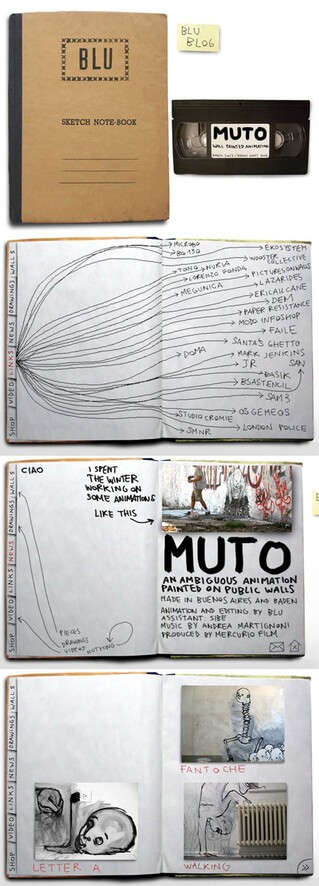 BLU
SKETCH NOTE-BOOK
BLU
BLOG
MUTO
WALL PAINTED ANIMATION
SHOP
VIDEO
LINKS
NEWS
DRAWINGS
WALLS
MICROBO
BO 130
TONO → NURIA
LORENZO FONDA
MEGUNICA
DOMA
STUDIO CROMIE
SMNR
EKOSYSTEM
WOOSTER
COLLECTIVE
PICTURESONWALLS
LAZARIDES
ERICAILCANE
DEM
PAPER RESISTANCE
MODO INFOSHOP
FAILE
SANTA'S GHETTO
MARK JENKINS
JR
SAN
BASIK
BSASTENCIL
SAM3
OS GEMEOS
LONDON POLICE
SHOP
VIDEO
LINKS
NEWS
DRAWINGS
WALLS
CIAO
I SPENT
THE WINTER
WORKING ON
SOME ANIMATIONS
LIKE THIS
PIECES
DRAWINGS
VIDEOS
NOTHING
MUTO
AN AMBIGUOUS ANIMATION
PAINTED ON PUBLIC WALLS
MADE IN BUENOS AIRES AND BADEN
ANIMATION AND EDITING BY BLU
ASSISTANT: SIBE
MUSIC BY ANDREA MARTIGNONI
PRODUCED BY MERCURIO FILM
SHOP
VIDEO
LINKS
NEWS
DRAWINGS
WALLS
FANTOCHE
LETTER A
WALKING